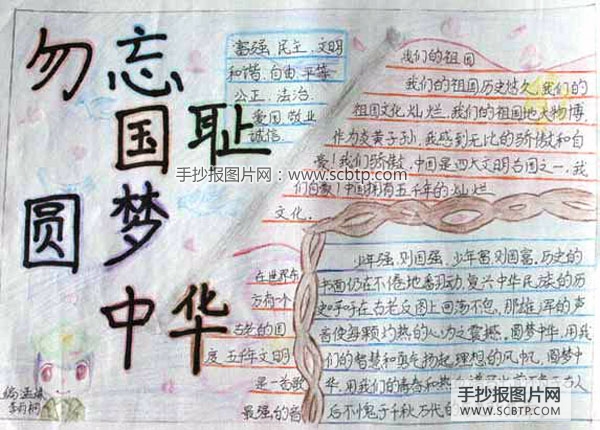 勿忘
国耻
圆梦
中华
富强、民主、文明
和谐、自由、平等
公正、法治、
爱国、敬业
诚信、
我们的祖国
我们的祖国历史悠久,我们的
祖国文化灿烂,我们的祖国地大物博
作为炎黄子孙,我感到无比的骄傲和自
豪!我们骄傲,中国是四大文明古国之一,我
们自豪!中国拥有五千年的灿烂
文化。
手抄报图片网:www.scbtp.com
在世界东
方有一个
古老的国
度 五千年文明
是一首歌
最强的音
少年强,则国强,少年富,则国富,历史的
书画仍在不倦地翻动,复兴中华民族的历
在古老版图上回荡不息,那雄浑的声
音使每颗灼热的心为之震撼。圆梦中华,用我
们的智慧和勇气扬起理想的风帆。圆梦中
华,用我们的青春和热
后不愧于千秋万代的
编:孟
李雨桐
手抄报图片网
WWW.SCBTP.COM